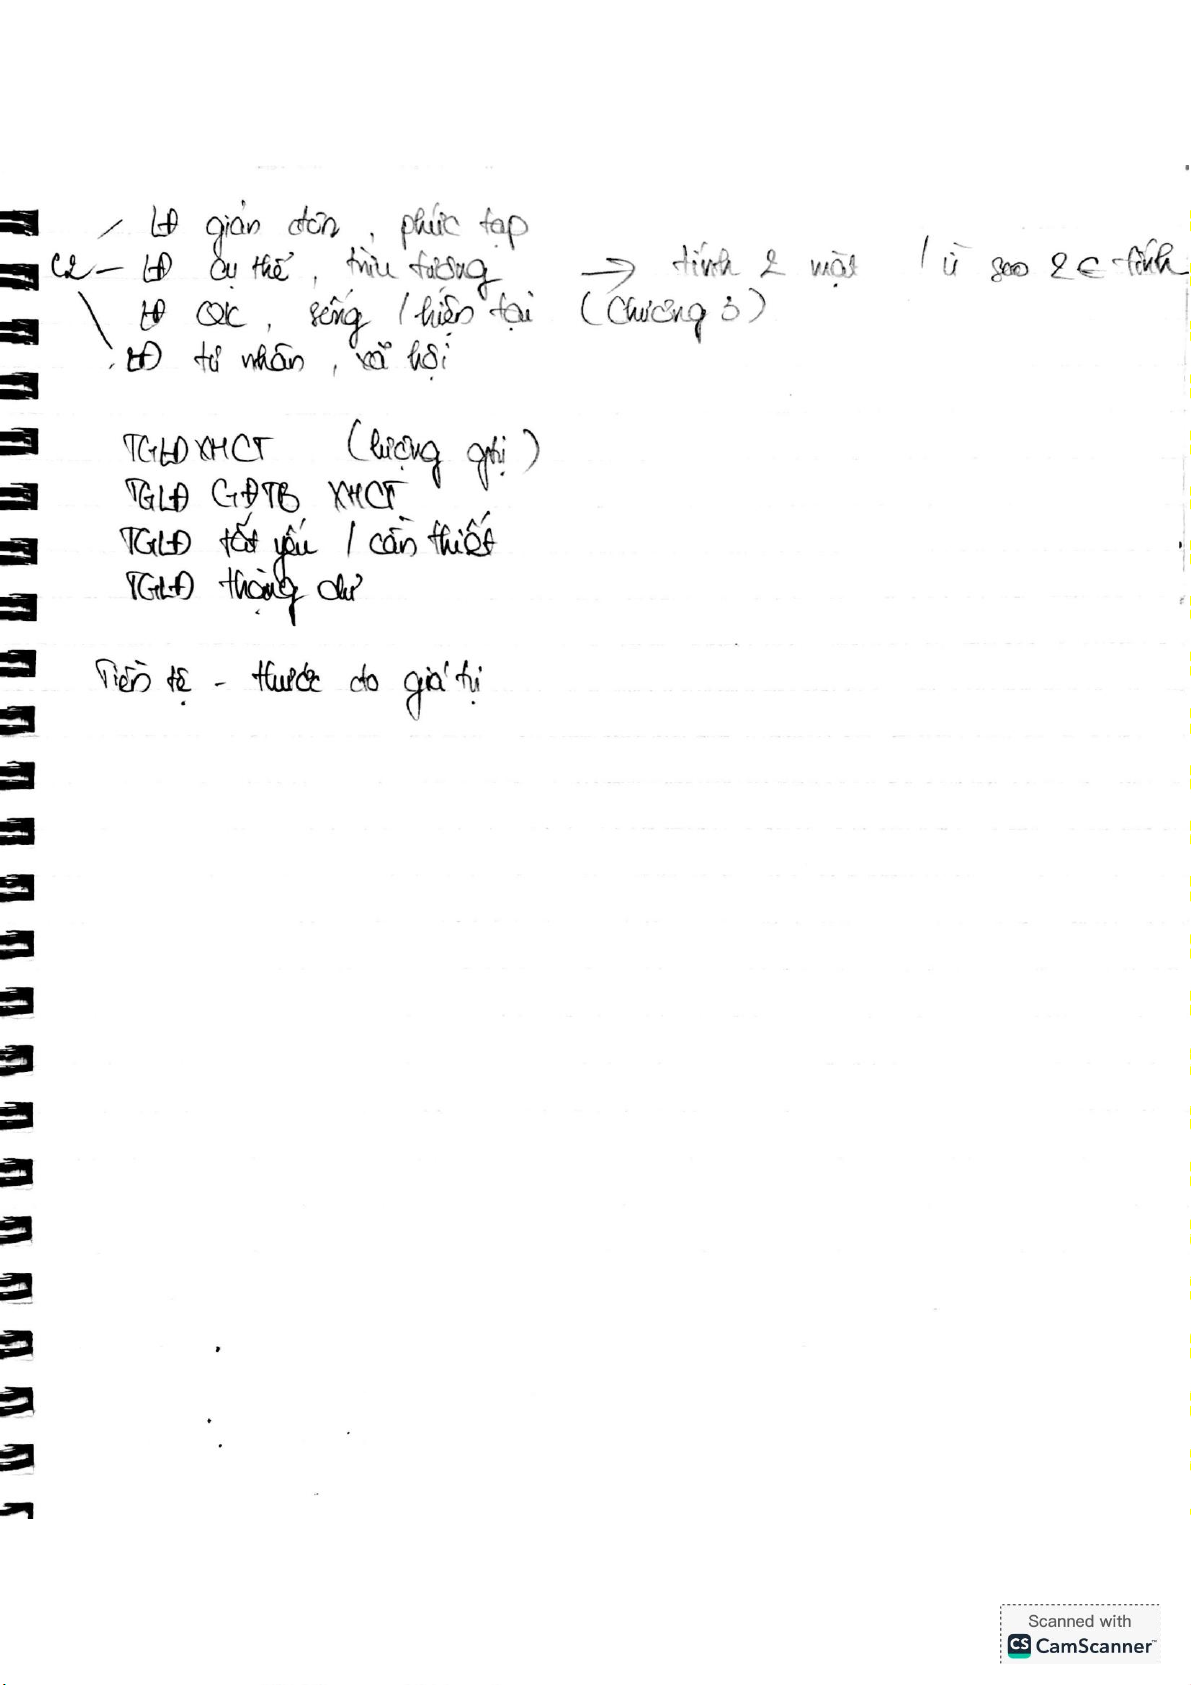 LĐ giản đơn, phức tạp
C2 – LĐ cụ thể, trừu tượng → tính 2 mặt / Vì sao 2 tính
LĐ QK, sống / hiện tại (Chương 3)
LĐ tư nhân, xã hội
TGLĐXHCT (lượng gtrị)
TGLĐ GĐTB XHCT
TGLĐ tất yếu / cần thiết
TGLĐ thặng dư
Tiền tệ - thước đo giá trị
Scanned with
CS CamScanner™